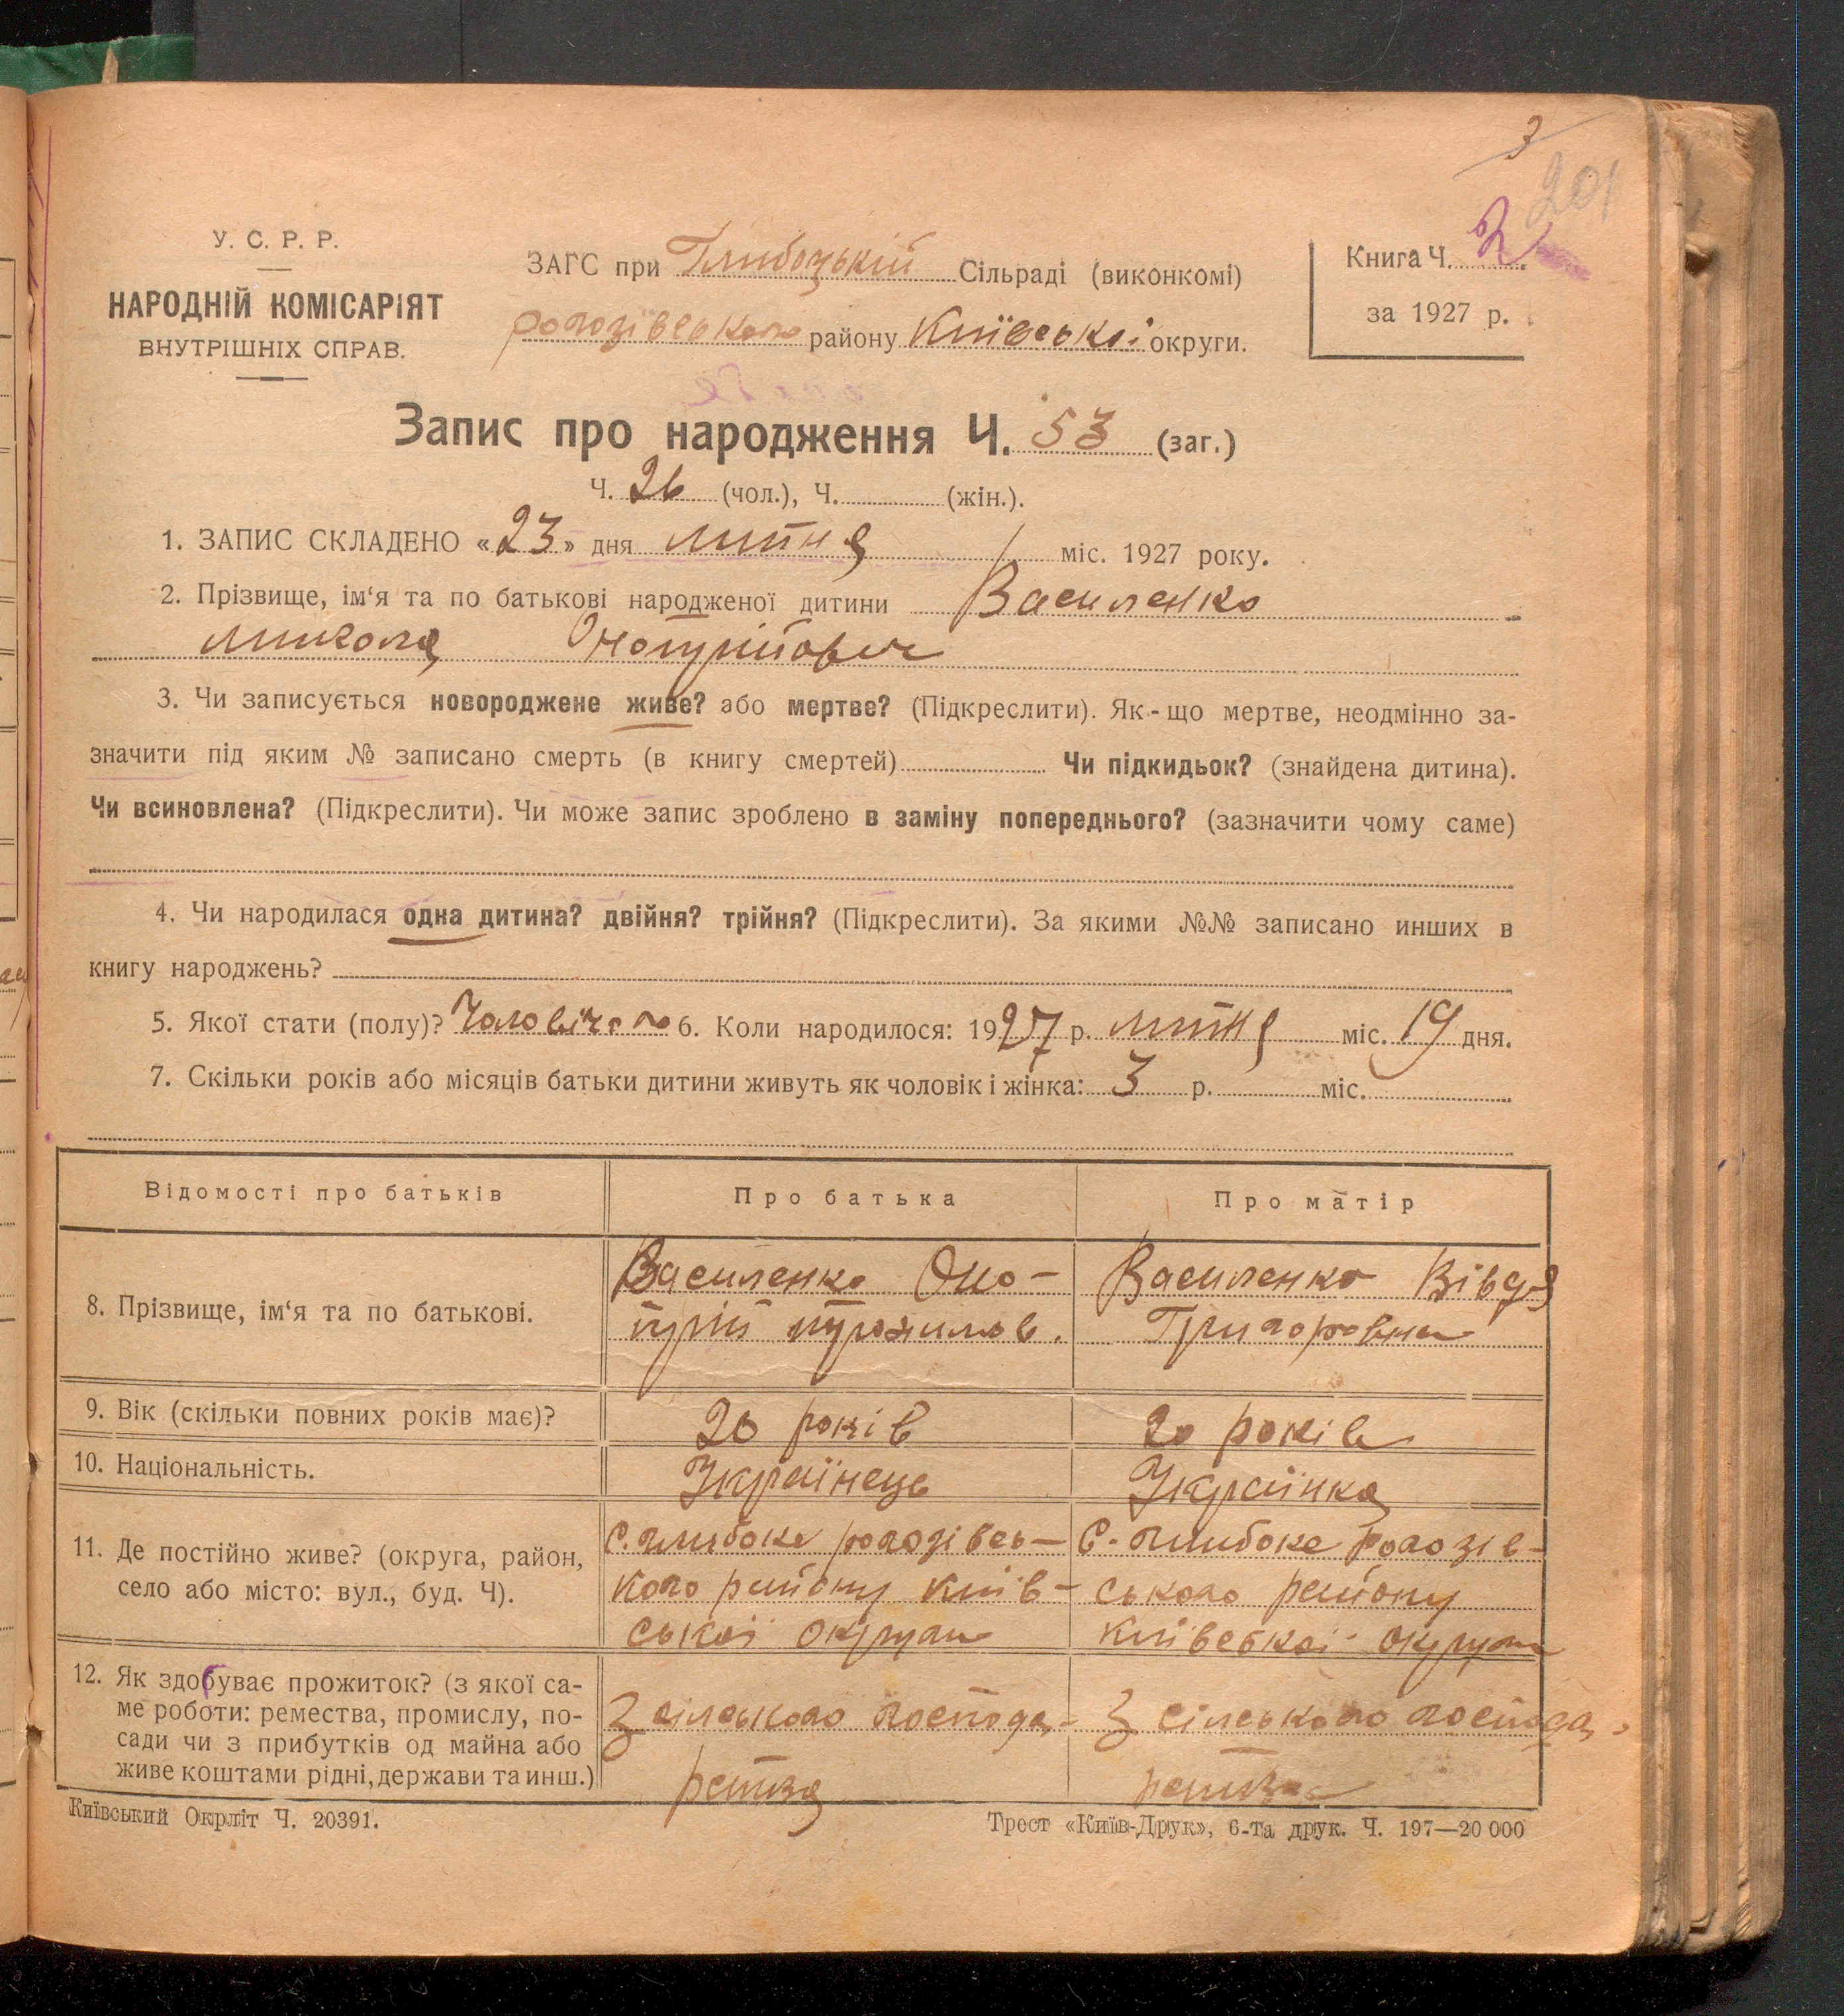 3
201
У. С. Р. Р.
НАРОДНІЙ КОМІСАРІЯТ
ВНУТРІШНІХ СПРАВ.
ЗАГС при Глибоцькій Сільраді (виконкомі)
рогозівського району Київської округи.
Книга Ч. 2
за 1927 р.
Запис про народження Ч. 53 (заг.)
Ч. 26 (чол.), Ч. (жін.).
1. ЗАПИС СКЛАДЕНО «23» дня липня міс. 1927 року.
2. Прізвище, ім‘я та по батькові народженої дитини Василенко
Микола Онопрійович
3. Чи записується новороджене живе? або мертве? (Підкреслити). Як-що мертве, неодмінно за-
значити під яким № записано смерть (в книгу смертей) Чи підкидьок? (знайдена дитина).
Чи всиновлена? (Підкреслити). Чи може запис зроблено в заміну попереднього? (зазначити чому саме)
4. Чи народилася одна дитина? двійня? трійня? (Підкреслити). За якими №№ записано инших в
книгу народжень?
5. Якої стати (полу)? Чоловічого 6. Коли народилося: 1927 р. липня міс. 19 дня.
7. Скільки років або місяців батьки дитини живуть як чоловік і жінка: 3 р. міс.
Відомості про батьків Про батька Про матір
8. Прізвище, ім‘я та по батькові.
Василенко Оно-
прій
Василенко Вівдя
Григоровна
9. Вік (скільки повних років має)? 20 років 20 років
10. Національність. Українець Українка
11. Де постійно живе? (округа, район,
село або місто: вул., буд. Ч).
С. глибоке рогозівсь-
кого району Київ-
ської округи
С. глибоке рогозів-
ського району
київської округи
12. Як здобуває прожиток? (з якої са-
ме роботи: ремества, промислу, по-
сади чи з прибутків од майна або
живе коштами рідні, держави та инш.)
З сільського господа-
рства
З сільського господа-
рства
Київський Окрліт Ч. 20391.
Трест «Київ-Друк», 6-та друк. Ч. 197—20 000